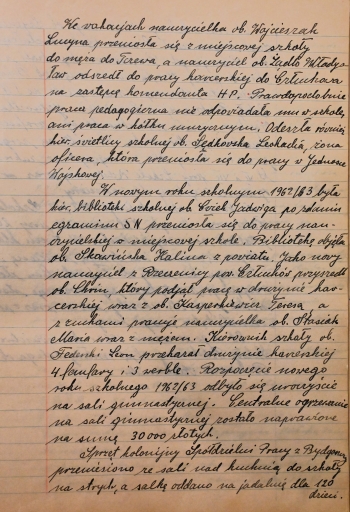 We wakacjach nauczycielka ob. Wojcieszak
Lucyna przeniosła się z miejscowej szkoły
do męża do Tczewa, a nauczyciel ob. Zwdło Włady-
ław odszedł do pracy harcerskiej do Człuchowa
na zastępcę komendanta H.P. Prawdopodobnie
praca pedagogiczna nie odpowiadała mu w szkole,
ani praca w kółku muzycznym. Odeszła również
kier. świetlicy szkolnej ob. Sędkowska Leokadia, żona
oficera, która przeniosła się do pracy w Jednosce
Wojskowej.
W nowym roku szkolnym 1962/63 była
kier. biblioteki szkolnej ob. Ćwiek Jadwiga po zdaniu
egzaminu SN przeniosła się do pracy nau-
czycielskiej w miejscowej szkole. Bibliotekę objęła
ob. Skawińska Halina z powiatu. Jako nowy
nauczyciel z Rzeczenicy pow. Człuchów przyszedł
ob. Chrin, który podjął pracę w drużynie har-
cerskiej wraz z ob. Kasperkiewicz Teresą, a
z zuchami pracuje nauczycielka ob. Stasiak
Maria wraz z mężem. Kierownik szkoły ob.
Leon przekazał drużynie harcerskiej
4 fanfary i 3 werble. Rozpoczęcie nowego
roku szkolnego 1962/63 odbyło się uroczyście
na sali gimnastycznej. Centralne ogrzewanie
na sali gimnastycznej zostało naprawione
na sumę 30000 złotych.
Sprzęt kolonijny Spółdzielni Pracy z Bydgoszczy
przeniesiono ze sali nad kuchnią do szkoły
na strych, a salkę oddano na jadalnię dla 120
dzieci.